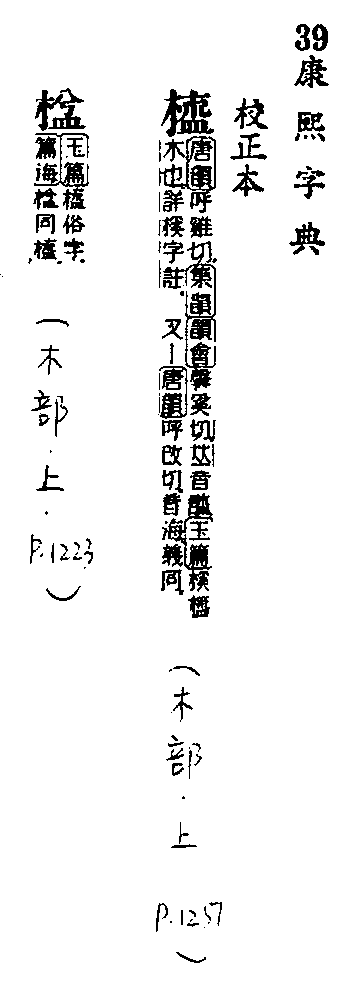 39康熙字典
校正本
橀
唐韻呼雞切集韻韻會馨奚切𠀤音醯玉篇橀
木也詳榽字註 又丨唐韻呼改切音海義同
(木部.上 P.1257)
玉篇橀俗字
篇海同橀
(木部.上.P.1223)